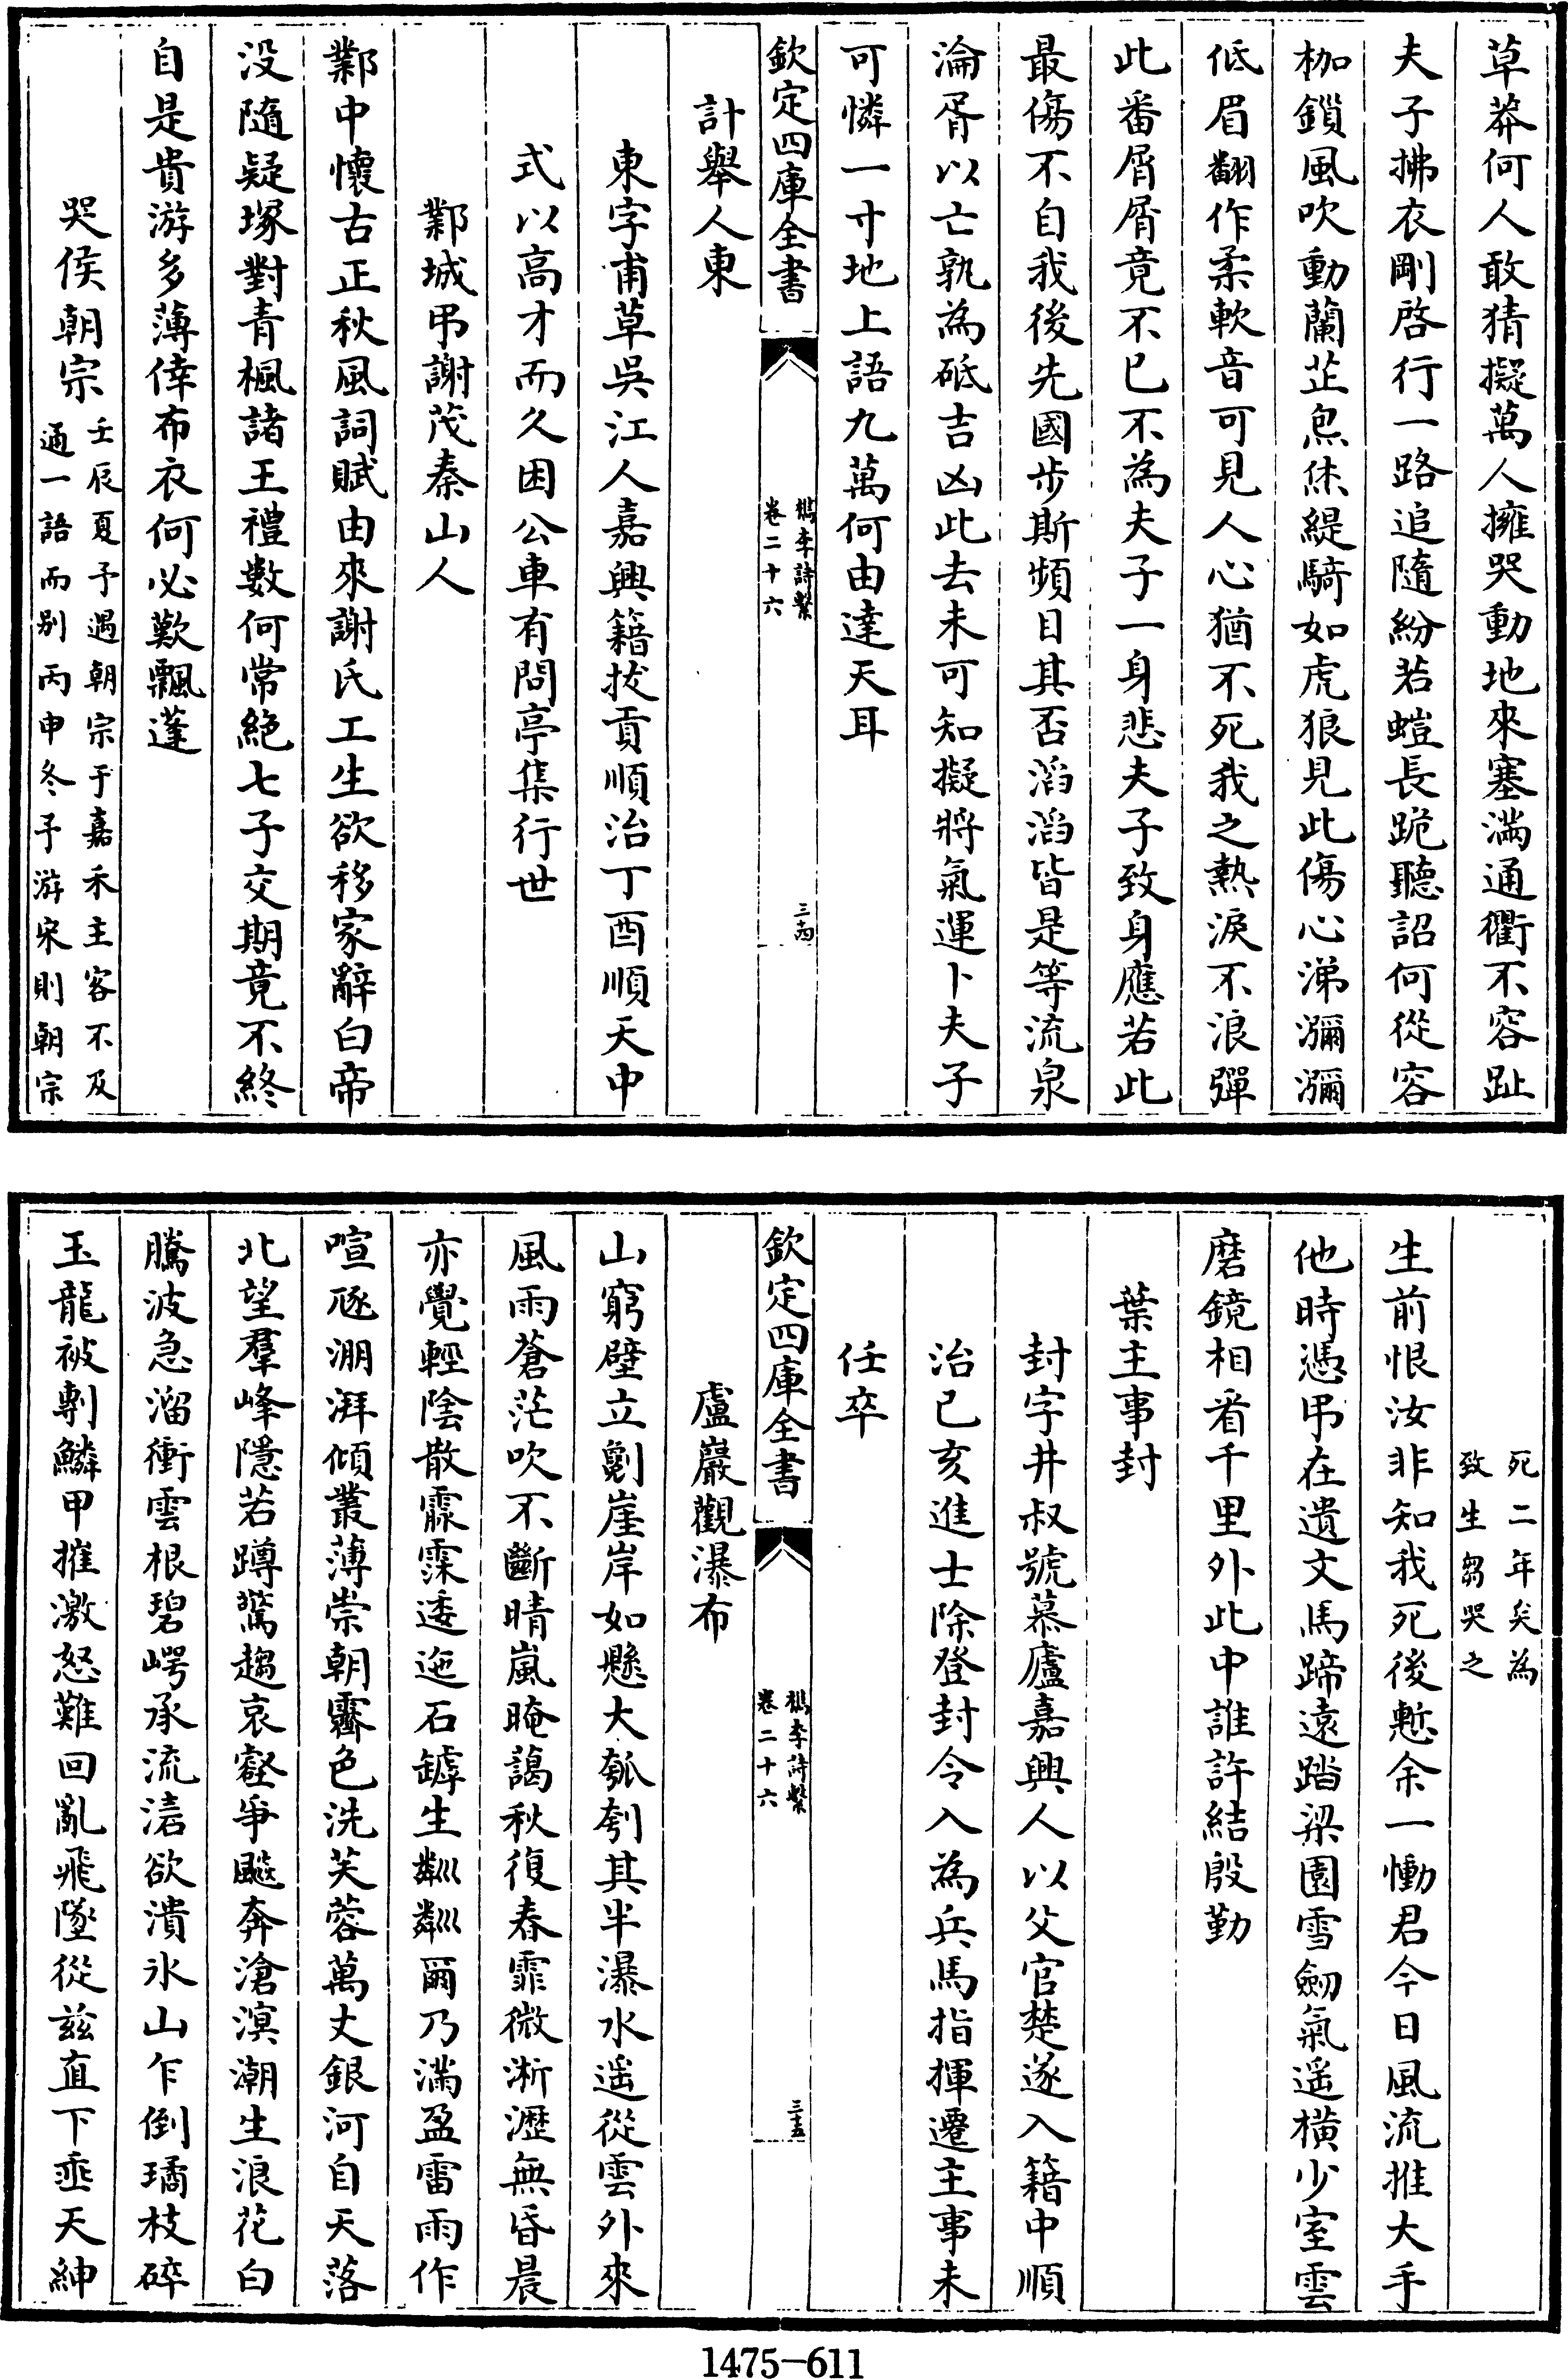 草莽何人敢猜擬萬人擁哭動地來塞滿通衢不容趾
夫子拂衣剛啓行一路追隨紛若螘長跪聽詔何從容
枷鎖風吹動蘭芷炰烋緹騎如虎狼見此傷心涕瀰瀰
低眉翻作柔軟音可見人心猶不死我之熱淚不浪彈
此番屑屑竟不已不為夫子一身悲夫子致身應若此
最傷不自我後先國步斯頻目其否滔滔皆是等流泉
淪胥以亡孰為砥吉凶此去未可知擬將氣運卜夫子
可憐一寸地上語九萬何由達天耳
欽定四庫全書
檇李詩繫
卷二十六
三十四
計舉人東
東字甫草吳江人嘉興籍拔貢順治丁酉順天中
式以高才而久困公車有問亭集行世
鄴城弔謝茂秦山人
鄴中懷古正秋風詞賦由來謝氏工生欲移家辭白帝
没隨疑塚對青楓諸王禮數何常絕七子交期竟不終
自是貴游多薄倖布衣何必歎飄蓬
哭侯朝宗
壬辰夏予遇朝宗于嘉禾主客不及
通一語而别丙申冬予游宋則朝宗
死二年矣為
致生芻哭之
生前恨汝非知我死後慙余一慟君今日風流推大手
他時憑弔在遺文馬蹄遠踏梁園雪劒氣遥橫少室雲
磨鏡相看千里外此中誰許結殷勤
葉主事封
封字井叔號慕廬嘉興人以父官楚遂入籍中順
治己亥進士除登封令入為兵馬指揮遷主事未
任卒
欽定四庫全書
檇李詩繫
卷二十六
三十五
盧巖觀瀑布
山窮壁立剷崖岸如懸大瓠刳其半瀑水遥從雲外來
風雨蒼茫吹不斷晴嵐晻藹秋復春霏微淅瀝無昏晨
亦覺輕陰散霢霂逶迤石罅生粼粼爾乃滿盈雷雨作
喧豗淜湃傾叢薄崇朝霽色洗芙蓉萬丈銀河自天落
北望羣峰隱若蹲驚趨哀壑爭飈奔滄溟潮生浪花白
騰波急溜衝雲根碧崿承流濇欲潰氷山乍倒璚枝碎
玉龍被剸鱗甲摧激怒難回亂飛墜從兹直下垂天紳
1475-611